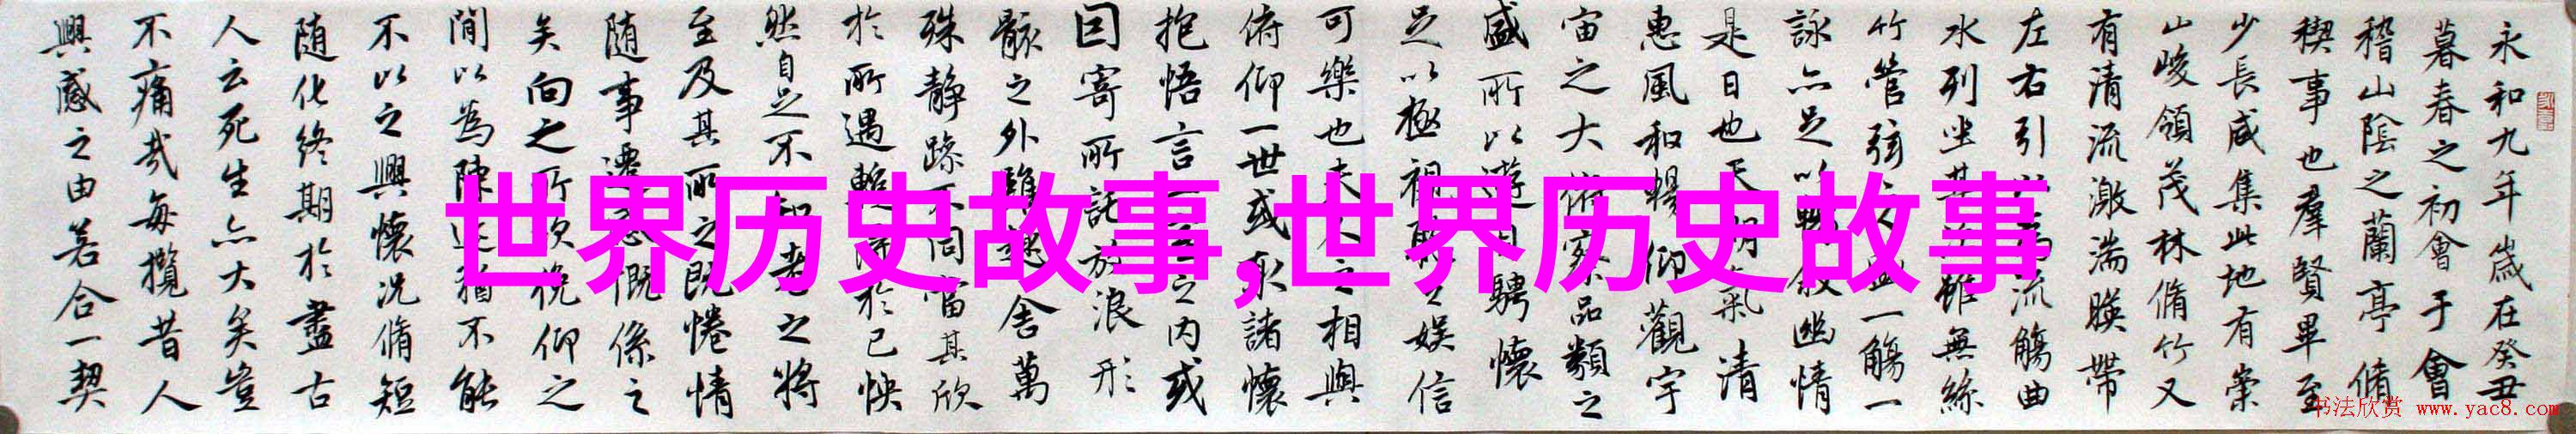 永和九年歲在癸丑
暮春之初會于會
稽山陰之蘭亭脩
稧事也羣賢畢至
少長咸集此地有崇
山峻領茂林脩竹又
有清流激湍暎帶
左右引以為流觴曲
水列坐其次雖無絲
竹管弦之盛一觴一
詠亦足以暢敘幽情
是日也天朗氣清
惠風和暢仰觀宇
宙之大俯察品類之
盛所以遊目騁懷
足以極視聽之娛信
可樂也夫人之相與
俯仰一世或取諸懷
抱悟言一室之內或
因寄所託放浪形
骸之外雖趣舍萬
殊靜躁不同當其欣
於所遇暫得於己怏
然自足不知老之將
至及其所之既惓情
隨事遷感慨係之
矣向之所欣俛仰之
閒以為陳迹猶不能
不以之興懷況脩短
随化終期於盡古
人云死生亦大矣豈
不痛哉每攬昔人
興感之由若合一契
世界历史故事,世界历史故事
书法欣赏 www.yac8.com